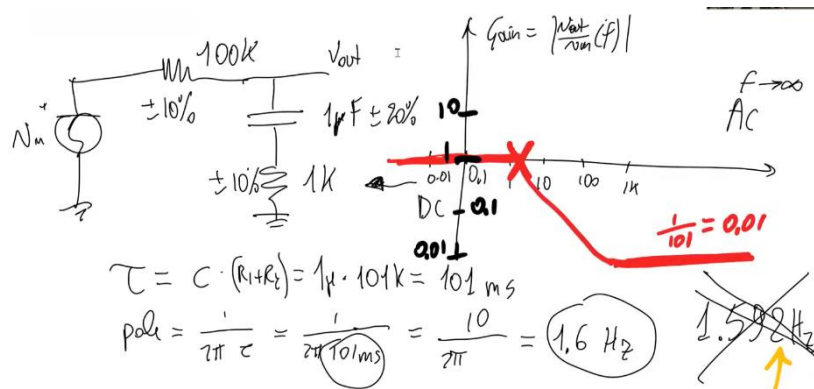 100K
Vout =
±10%
Vin +
1μF ± 20%
±10%
1K
Gain = |Vout/Vin (f)|
f → ∞
AC
10
1
0.01 0.1 1 10 100 1K
DC
0.1
0.01
1/101 = 0,01
τ = C · (R1+R2) = 1μ · 101K = 101 ms
pole = 1/2π τ = 1/2π 101ms = 10/2π = 1.6 Hz
1.592Hz